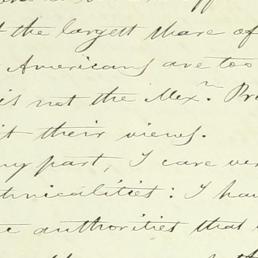 the largest share of
Americans are too
is not the Mexn. Pr
it their views.
my part, I care ver
chnicalities: I ha
authorities that